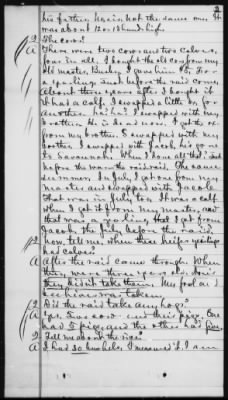 3
his father. He is not the same one. It
was about 12 or 13 hands high.
Q The cows?
A There were two cows and two calves,
four in all. I bought the old cow from my
old master, I gave him for
a yearling just before the raid came.
About three years after I bought it
it had a calf. I swapped a little
for another heifer. I swapped with my
brother. He is dead now. I got the
from my brother. I swapped with my
brother. I swapped with Jacob, he gone
to Savannah. When I done all that
before the war the raid. The same
summer. In July, I got one from my
master and swapped with Jacob.
That was in July too. It was a calf
when I got it from my master, and
that was a yearling that I got from
Jacob, the July before the raid.
Q Now, tell me, when these heifer yearlings
had calves?
A After the raid come through. When
they were three years old.
they didn't take them. My
was taken.
Q Did the raid take any hogs?
A Yes. Two sows and their pigs. One
had 5 pigs and the other had five.
Q Tell me about the rice?
A I had 50 bushels, I measured it. I am